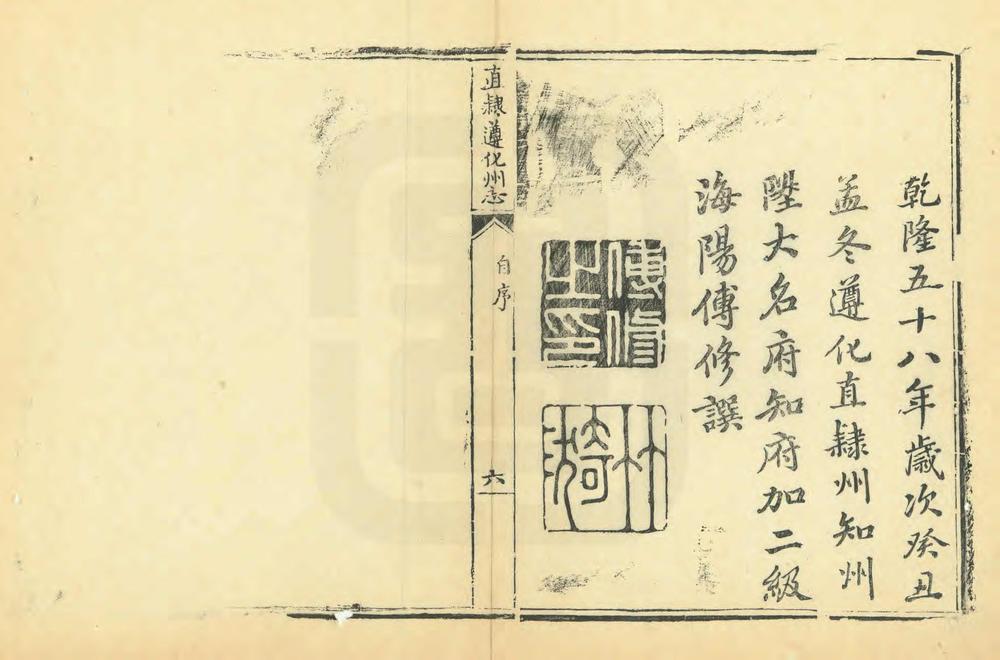 乾隆五十八年歲次癸丑
孟冬遵化直隸州知州
陞大名府知府加二級
海陽傅修譔
傅修之印
竹漪
直隸遵化州志
自序
六